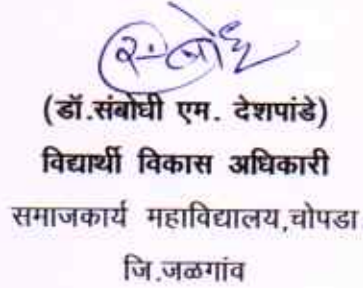 (डॉ.संबोधी एम. देशपांडे)
विद्यार्थी विकास अधिकारी
समाजकार्य महाविद्यालय,चोपडा
जि.जळगांव